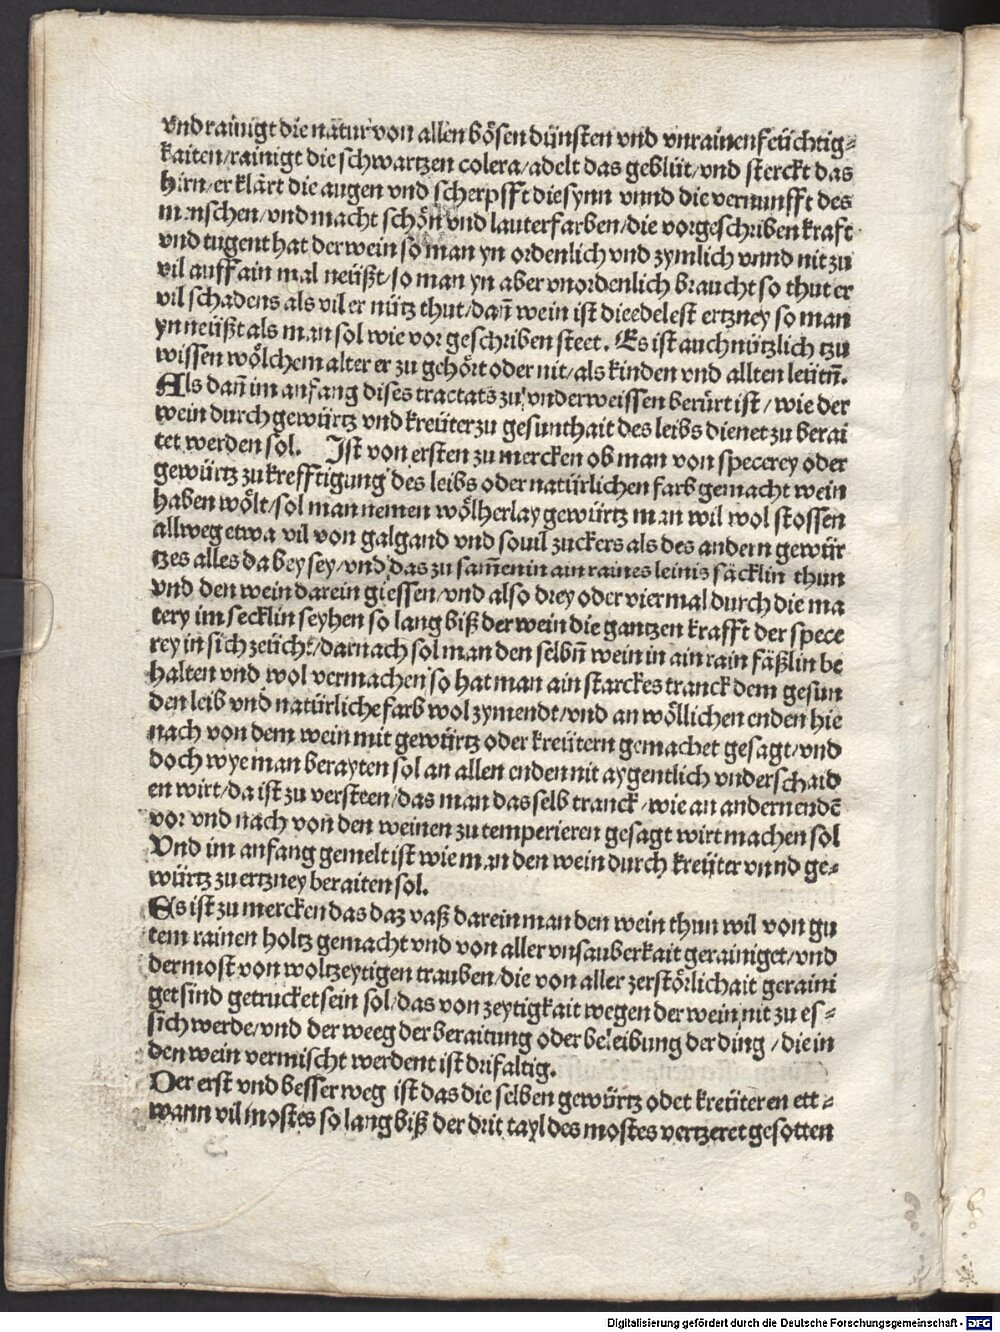 vnd rainigt die natur von allen bösen dünsten vnd vnrainen feüchtig⸗
kaiten/rainigt die schwartzen colera/adelt das geblüt/vnd sterckt das
hirn/erklärt die augen vnd scherpfft die synn vnnd die vernunfft des
menschen/vnd macht schön vnd lauter farben/die vorgeschriben kraft
vnd tugent hat der wein so man yn ordenlich vnd zymlich vnnd nit zu
vil auff ain mal neüßt/so man yn aber vnordenlich braucht so thut er
vil schadens als vil er nütz thut/dañ wein ist die edelest ertzney so man
yn neüßt als man sol wie vor geschriben steet. Es ist auch nützlich tzu
wissen wölchem alter er zu gehört oder nit/als kinden vnd allten leütñ.
Als dañ im anfang dises tractats zu vnderweissen berürt ist/wie der
wein durch gewürtz vnd kreüter zu gesunthait des leibs dienet zu berai
tet werden sol. Ist von ersten zu mercken ob man von specerey oder
gewürtz zu krefftigung des leibs oder natürlichen farb gemacht wein
haben wölt/sol man nemen wölherlay gewürtz man wil wol stossen
allweg etwa vil von galgand vnd souil zuckers als des andern gewür
tzes alles da bey sey/vnd das zu sam̃en in ain raines leinis säcklin thun
vnd den wein darein giessen/vnd also drey oder vier mal durch die ma
tery im secklin seyhen so lang biß der wein die gantzen krafft der spece
rey in sich zeücht/darnach sol man den selbñ wein in ain rain fäßlin be
halten vnd wol vermachen so hat man ain starckes tranck dem gesun
den leib vnd natürliche farb wol zymendt/vnd an wöllichen enden hie
nach von dem wein mit gewürtz oder kreütern gemachet gesagt/vnd
doch wye man berayten sol an allen enden nit aygentlich vnderschaid
en wirt/da ist zu versteen/das man das selb tranck/wie an andern endē
vor vnd nach von den weinen zu temperieren gesagt wirt machen sol
Vnd im anfang gemelt ist wie man den wein durch kreüter vnnd ge⸗
würtz zu ertzney beraiten sol.
Es ist zu mercken das daz vaß darein man den wein thun wil von gu
tem rainen holtz gemacht vnd von aller vnsauberkait gerainiget/vnd
der most von woltzeytigen trauben/die von aller zerstörlichait geraini
get sind getrucket sein sol/das von zeytigkait wegen der wein nit zu es⸗
sich werde/vnd der weeg der beraitung oder beleibung der ding/die in
den wein vermischt werdent ist drifaltig.
Der erst vnd besser weg ist das die selben gewürtz odet kreüter en ett⸗
wann vil mostes so lang biß der drit tayl des mostes vertzeret gesotten
Digitalisierung gefördert durch die Deutsche Forschungsgemeinschaft - DFG